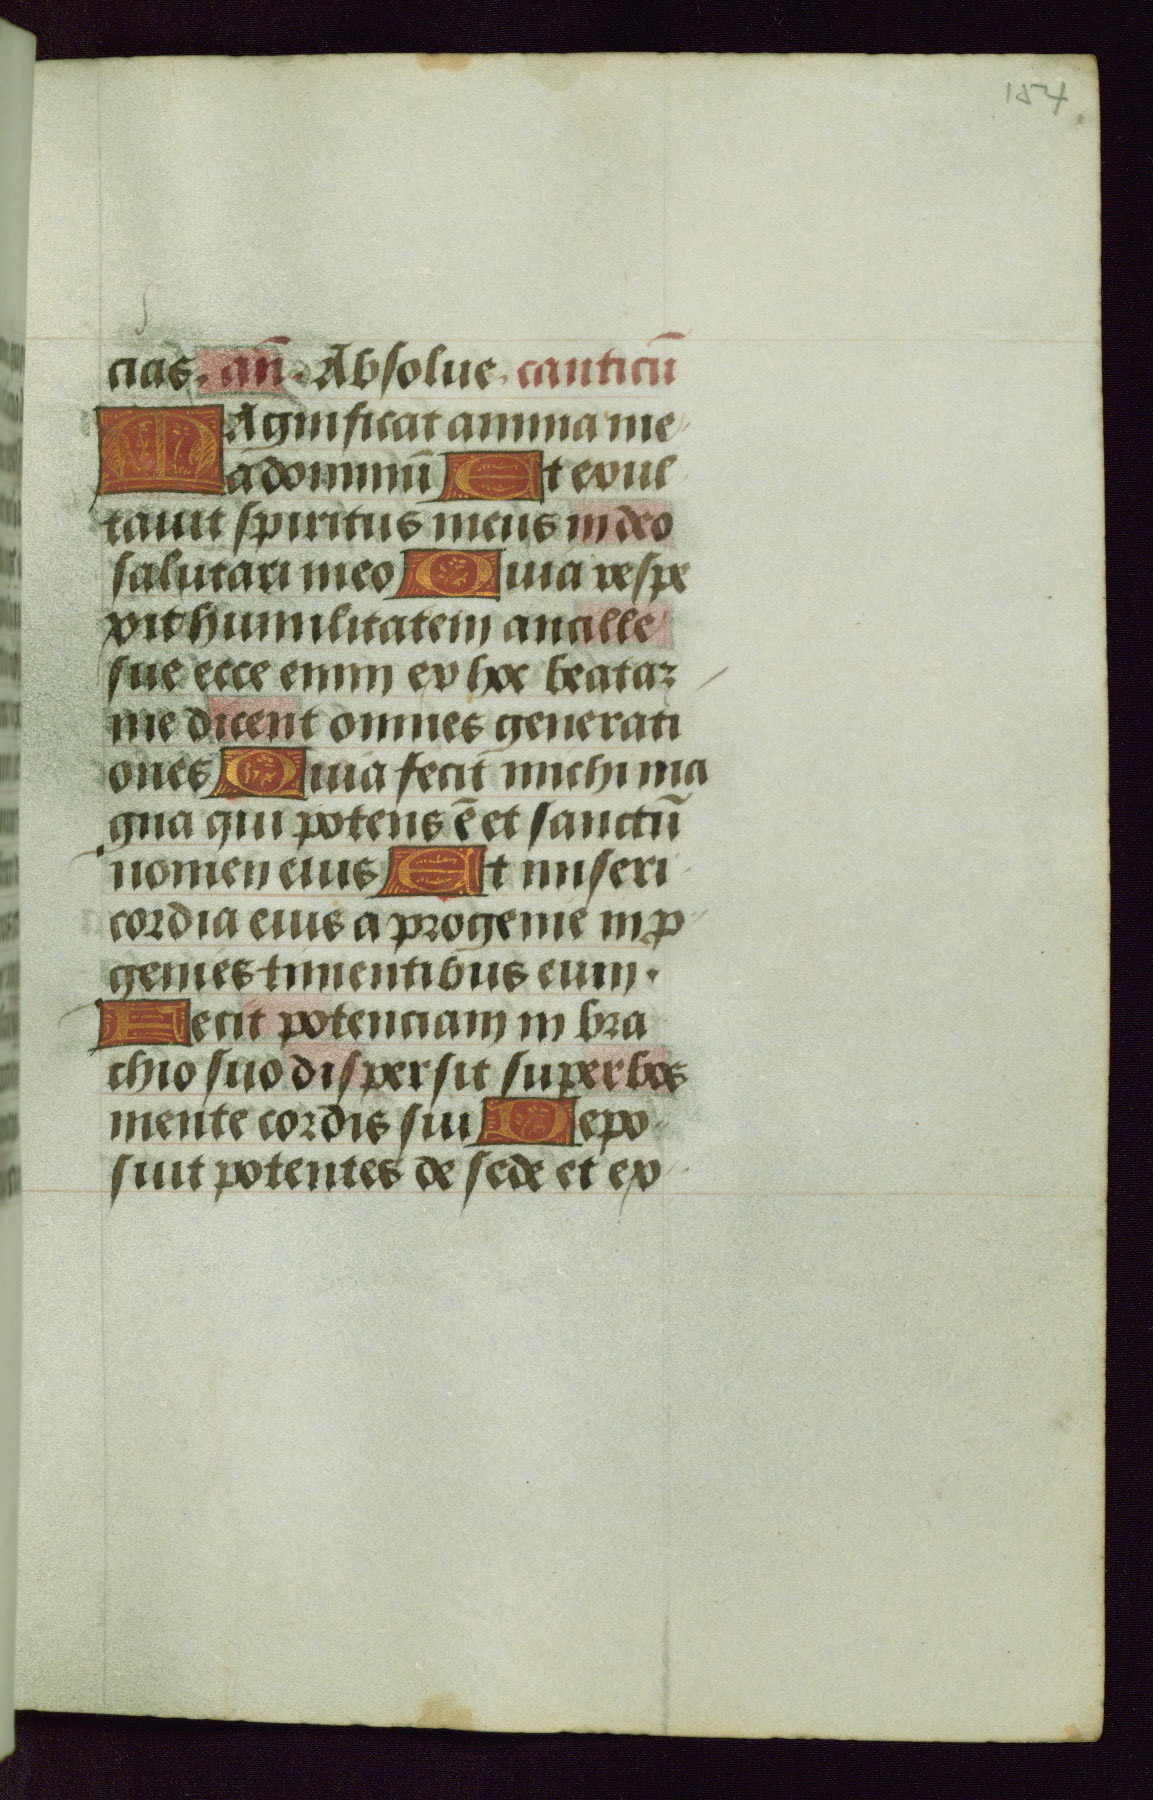 154
cias. añ. Absolue. canticū
MAgnificat anima me
a dominū Et exul
tauit spiritus meus in deo
salutari meo Quia respe
xit humilitatem ancille
sue ecce enim ex hoc beataz
me dicent omnes generati
ones Quia fecit michi ma
gna qui potens ē et sanctū
nomen eius Et miseri
cordia eius a progenie in ꝓ
genies timentibus eum.
Fecit potenciam in bra
chio suo dispersit superbos
mente cordis sui Depo
suit potentes de sede et ex